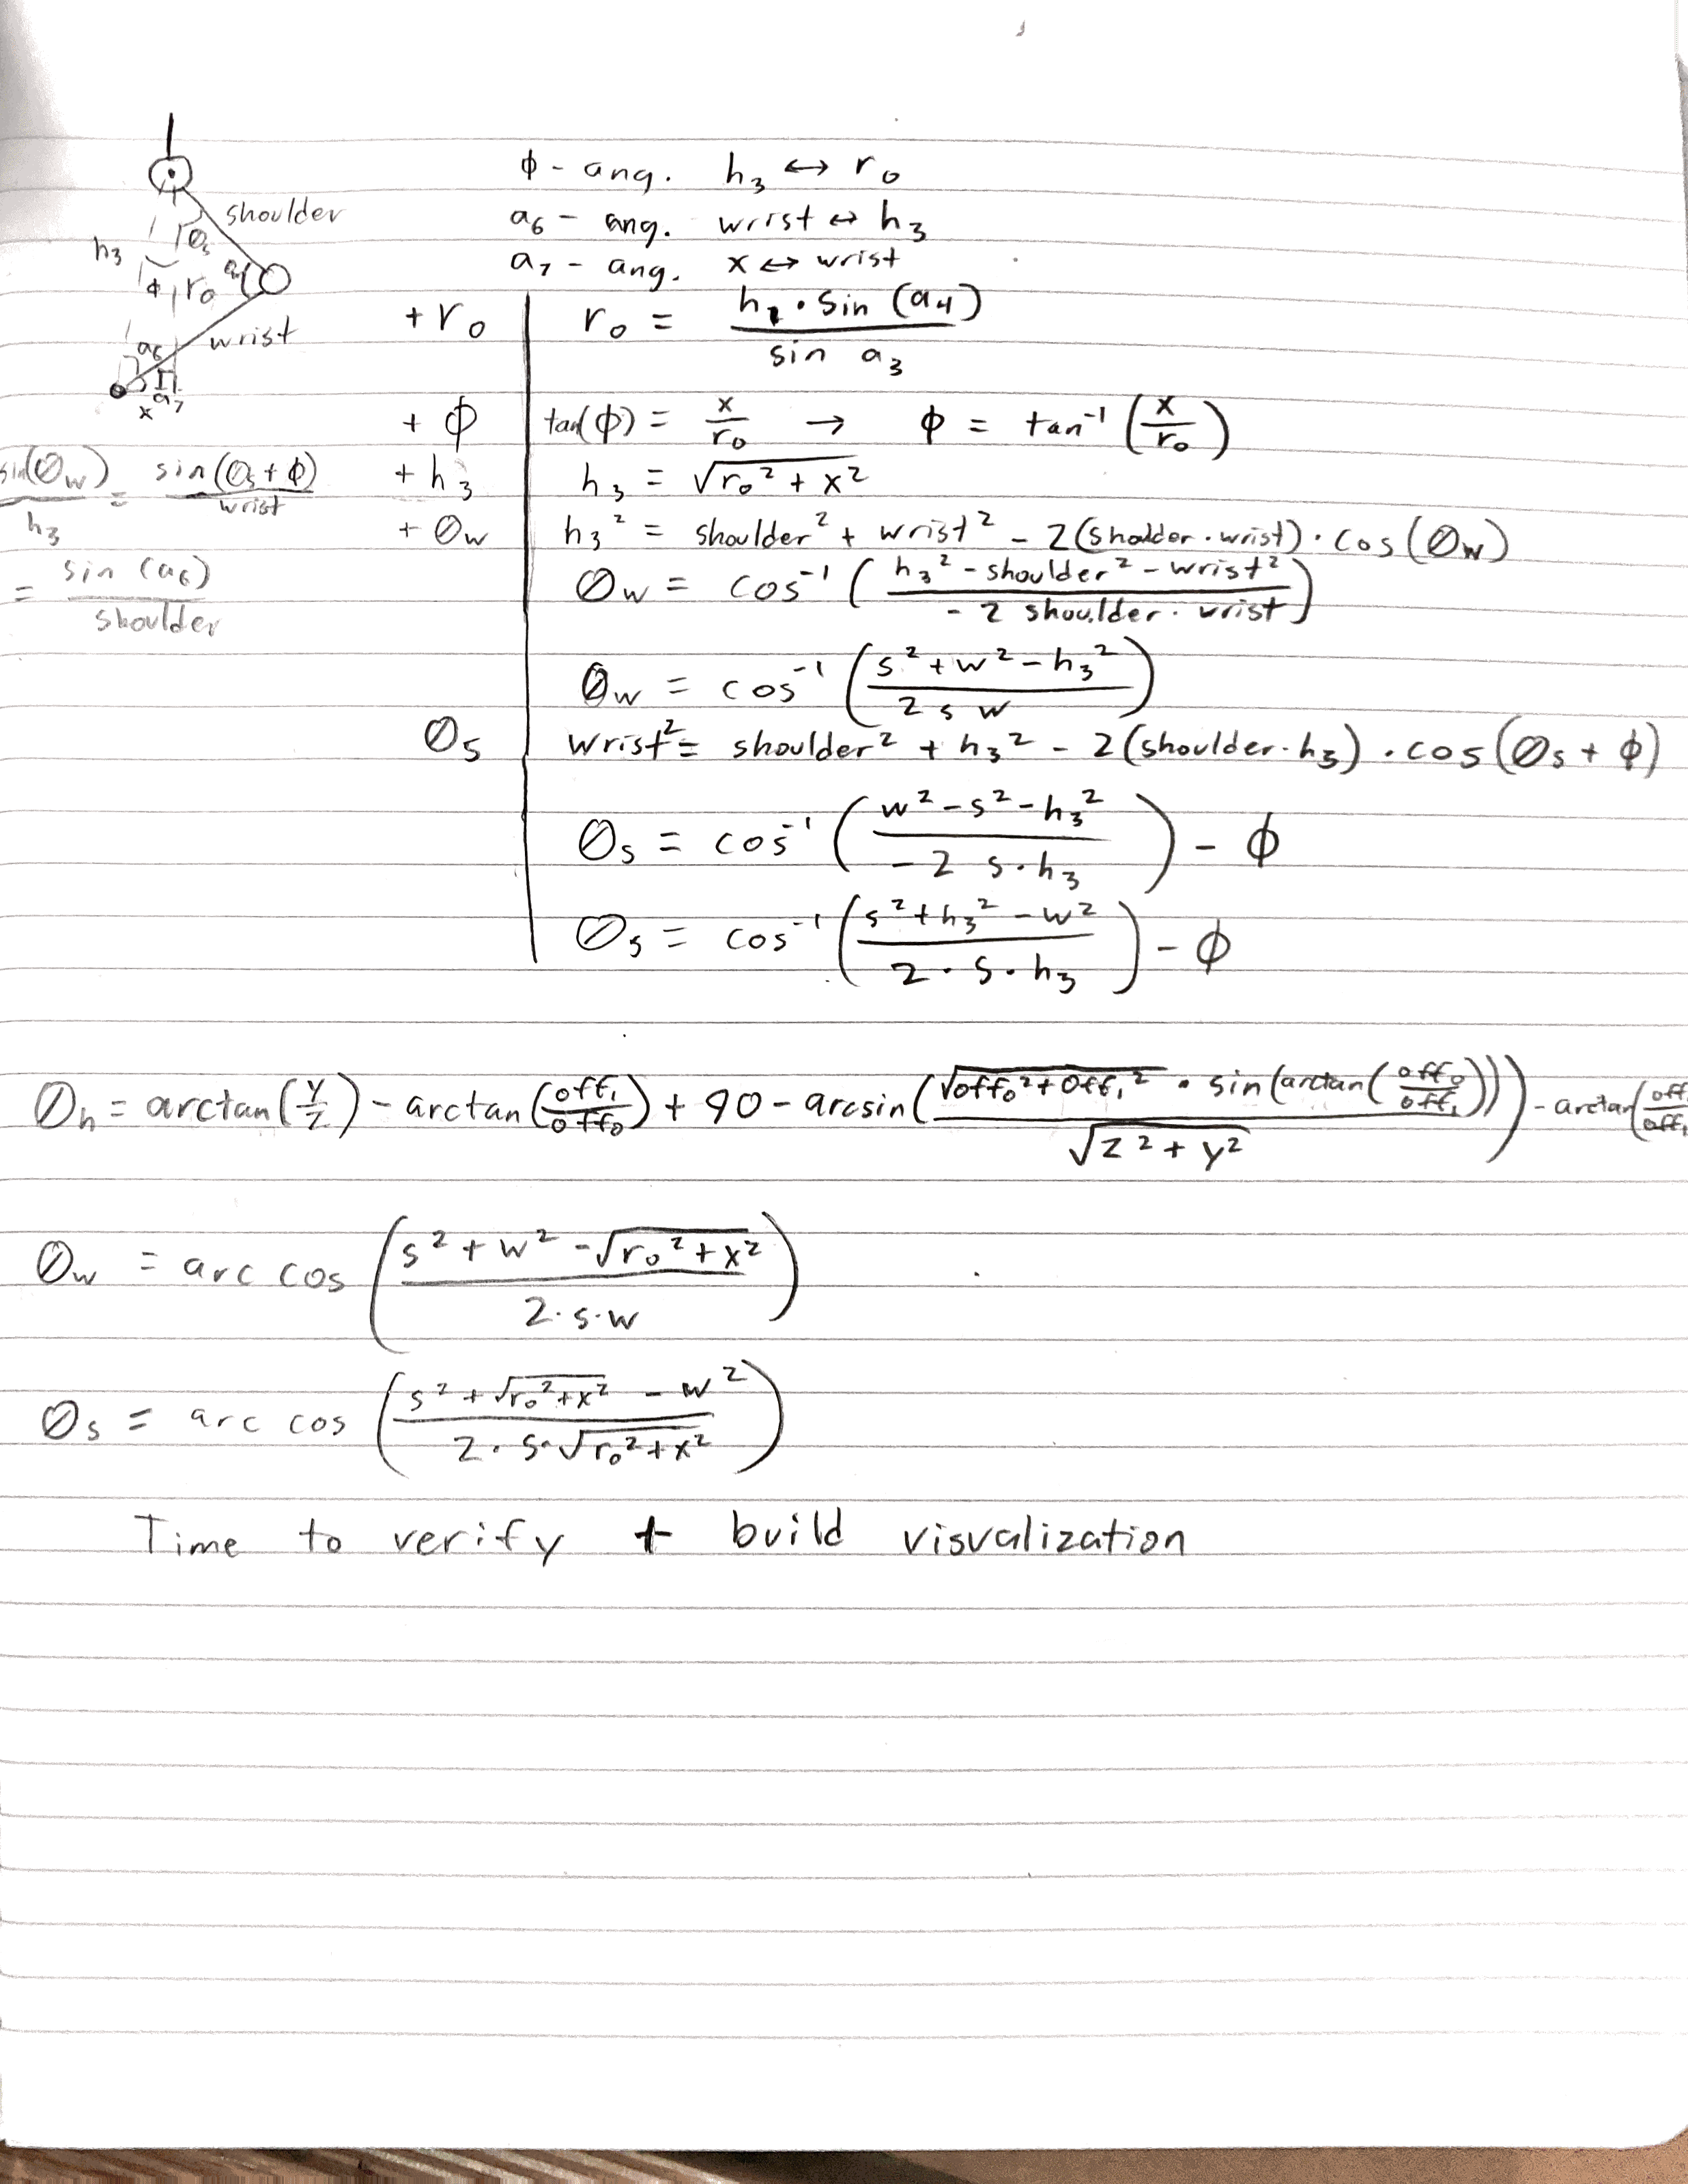 shoulder
h₃
θₛ
ϕ r₀
wrist
a₆
a₇
x
ϕ - ang. h₃ ↔ r₀
a₆ - ang. wrist ↔ h₃
a₇ - ang. x ↔ wrist
+ r₀ r₀ = h₁ · sin (a₄) / sin a₃
+ ϕ tan(ϕ) = x / r₀ → ϕ = tan⁻¹ (x / r₀)
+ h₃ h₃ = √(r₀² + x²)
sin(θw) / h₃ = sin(θₛ + ϕ) / wrist
= sin (a₆) / shoulder
+ θw h₃² = shoulder² + wrist² - 2(shoulder · wrist) · cos(θw)
θw = cos⁻¹ ( (h₃² - shoulder² - wrist²) / (- 2 shoulder · wrist) )
θw = cos⁻¹ ( (s² + w² - h₃²) / (2 s w) )
θₛ wrist² = shoulder² + h₃² - 2(shoulder · h₃) · cos(θₛ + ϕ)
θₛ = cos⁻¹ ( (w² - s² - h₃²) / (-2 s · h₃) ) - ϕ
θₛ = cos⁻¹ ( (s² + h₃² - w²) / (2 · s · h₃) ) - ϕ
θh = arctan(y / z) - arctan(off₁ / off₀) + 90 - arcsin( (√(off₀² + off₁²) · sin(arctan(off₀ / off₁))) / √(z² + y²) ) - arctan(off / off₁
θw = arc cos ( (s² + w² - √(r₀² + x²)) / (2 · s · w) )
θₛ = arc cos ( (s² + √(r₀² + x²) - w²) / (2 · s · √(r₀² + x²)) )
Time to verify + build visualization